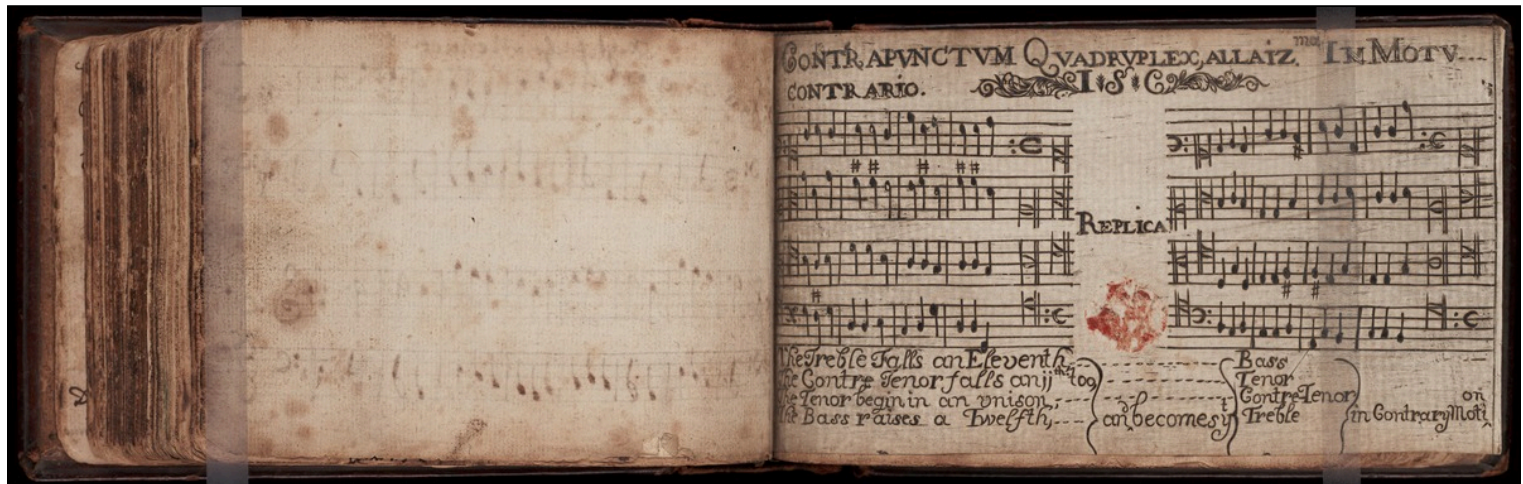 CONTRAPVNCTVM QVADRVPLEX, ALLA iz.ma IN MOTV....
CONTRARIO. I·S·C
REPLICA
The Treble Falls an Eleventh
The Contre Tenor falls an jj
The Tenor begin in an vnison,
The Bass raises a Twelfth,
an becomes
Bass
Tenor
Contre Tenor
Treble
in Contrary Motion